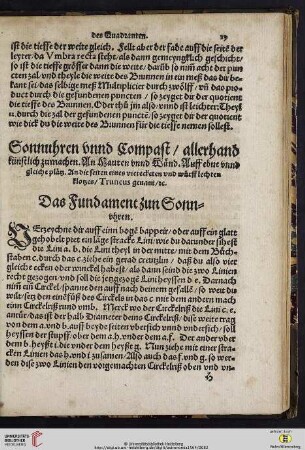 des Quadranten. 29
ist die tieffe der weite gleich. Felt aber der fade auff die seite der
leyter/da Vmbra recta stehet/als dann gemeyngklich geschicht/
so ist die tieffe grösser dann die weite/darüb so nim̃ acht der pun-
cten zal vnd theyle die weite des Brunnen in ein meß das du be-
kant sei/das selbige meß Multiplicier durch zwölff/vñ das pro-
duct durch die gefundenen puncten/so zeyget dir der quotient
die tieffe des Brunnen. Oder thů jm also/vnd ist leichter: Theyl
12. durch die zal der gefundenen puncten/so zeyget dir der quotient
wie dick du die weite des Brunnen für die tieffe nemen sollest.
Sonnuhren vnnd Compast/allerhand
künstlich zumachen. An Mauren vnnd Wänd. Auff ebne vnnd
gleiche plätz. An die seiten eines viereckleten vnd würfflechten
klotzes/Truncus genant/etc.
Das Fundament zun Sonn-
vhren.
VErzeychne dir auff einn bogẽ bappeir/oder auff ein glatt
gehobelt pret ein läge stracke Lini/wie du darunder sihest
die Lin a. b. die Lini theyl in der mitte/mit dem Bůch-
staben c. durch das c. ziehe ein gerad creutzlin/daß du also vier
gleiche ecken oder winckel habest/als dann seind die zwo Linien
recht gezogen vnd soll die jetzgezogẽ Lini heyssen d e. Darnach
nim̃ ein Circkel/spanne den auff nach deinem gefallẽ/so weit du
wilt/setz den eine fůß des Circkels in das c mit dem andern mach
ein Circkelriß rund vmb. Merck wo der Circkelriß die Lini c. e.
anrüre/das ist der halb Diameter deins Circkelriß/dise weite trag
von dem a. vnd b. auff beyde seiten vbersich vnnd vndersich/soll
heyssen der stupff/ober dem a. h. vnder dem a. f. Der ander vber
dem b. heyßt i. die vnder dem heyßt g. Nun ziehe mit einer stra-
cken Linien das h. vnd i zusamen/Also auch das f. vnd g. so wer-
den dise zwo Linien den vorgemachten Circkelriß oben vnd vn-
UNIVERSITÄTS-
BIBLIOTHEK
HEIDELBERG
© Universitätsbibliothek Heidelberg